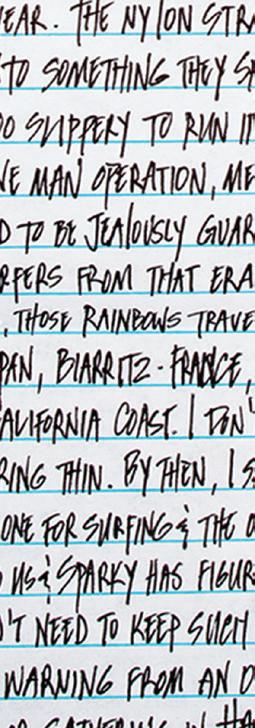 EAR. THE NYLON STRA
TO SOMETHING THEY SP
OO SLIPPERY TO RUN IT
NE MAN OPERATION, ME
D TO BE JEALOUSLY GUAR
RFERS FROM THAT ERA
, THOSE RAINBOWS TRAVE
PAN, BIARRITZ - FRANCE,
ALIFORNIA COAST. I DON'
RING THIN. BY THEN, I S
ONE FOR SURFING & THE O
US & SPARKY HAS FIGUR
'T NEED TO KEEP SUCH
WARNING FROM AN O
GATHERING IN HA